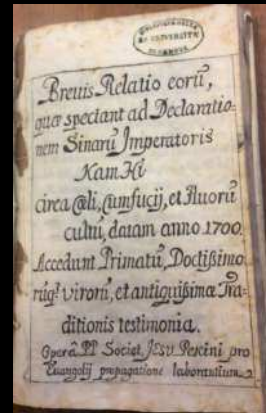 Brevis Relatio eorũ,
quæ spectant ad Declaratio-
nem Sinarũ Imperatoris
Kam Hi
circa Cæli, Cumfucij, et Avorũ
cultũ, datam anno 1700.
Accedunt Primatũ, Doctißimo-
rũq3 virorũ, et antiquißimæ Tra-
ditionis testimonia.
Operâ PP Societ. JESV Pekini pro
Euangelij propagatione laborantium.